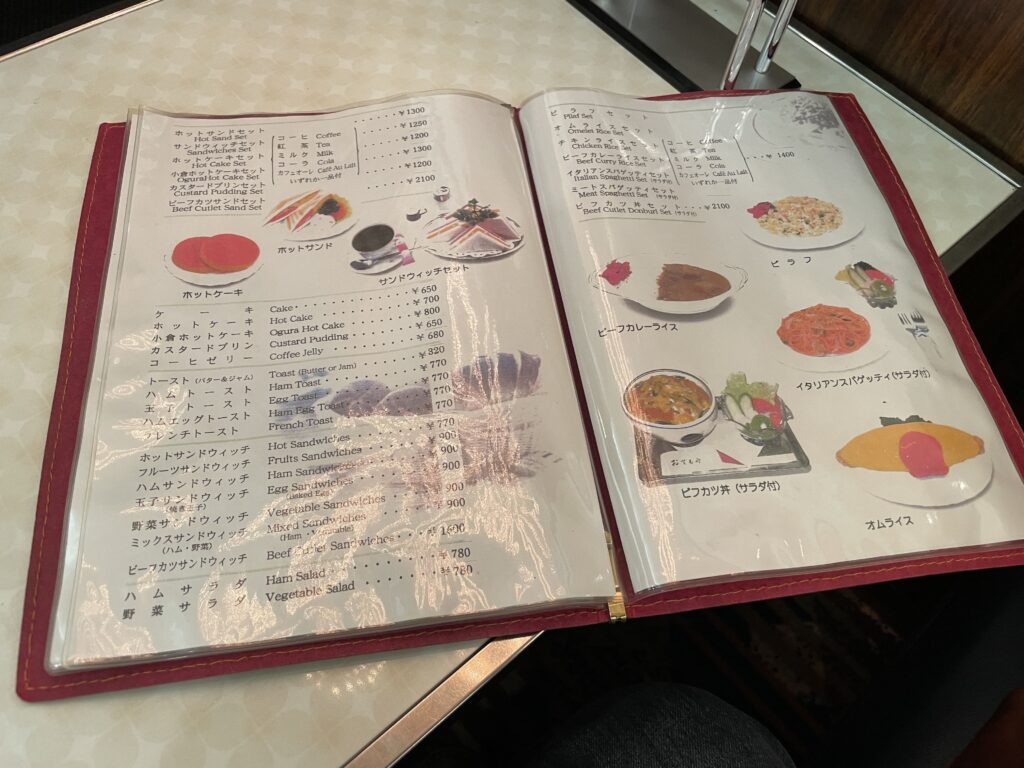 ホットサンドセット
Hot Sand Set
サンドウィッチセット
Sandwiches Set
ホットケーキセット
Hot Cake Set
小倉ホットケーキセット
OguraHot Cake Set
カスタードプリンセット
Custard Pudding Set
ビーフカツサンドセット
Beef Cutlet Sand Set
コーヒ Coffee
紅茶 Tea
ミルク Milk
コーラ Cola
カフェオーレ Café Au Lait
いずれか一品付
¥1300
¥1250
¥1200
¥1300
¥1200
¥2100
ホットケーキ
ホットサンド
サンドウィッチセット
ケーキ Cake ¥650
ホットケーキ Hot Cake ¥700
小倉ホットケーキ Ogura Hot Cake ¥800
カスタードプリン Custard Pudding ¥650
コーヒゼリー Coffee Jelly ¥680
トースト(バター&ジャム) Toast (Butter or Jam) ¥320
ハムトースト Ham Toast ¥770
玉子トースト Egg Toast ¥770
ハムエッグトースト Ham Egg Toast ¥770
フレンチトースト French Toast ¥770
ホットサンドウィッチ Hot Sandwiches ¥770
フルーツサンドウィッチ Fruits Sandwiches ¥900
ハムサンドウィッチ Ham Sandwiches ¥900
玉子サンドウィッチ Egg Sandwiches ¥900
(焼き玉子) (Baked Egg)
野菜サンドウィッチ Vegetable Sandwiches ¥900
ミックスサンドウィッチ Mixed Sandwiches ¥900
(ハム・野菜) (Ham・Vegetable)
ビーフカツサンドウィッチ Beef Cutlet Sandwiches ¥1600
ハムサラダ Ham Salad ¥780
野菜サラダ Vegetable Salad ¥780
ピラフセット
Pilaf Set
オムライスセット
Omelet Rice Set
チキンライスセット
Chicken Rice Set
ビーフカレーライスセット
Beef Curry Rice Set
イタリアンスパゲッティセット
Italian Spaghetti Set (サラダ付)
ミートスパゲッティセット
Meat Spaghetti Set (サラダ付)
ビフカツ丼セット ¥2100
Beef Cutlet Donburi Set (サラダ付)
コーヒ Coffee
紅茶 Tea
ミルク Milk
コーラ Cola
カフェオーレ Café Au Lait
いずれか一品付
¥1400
ピラフ
ビーフカレーライス
イタリアンスパゲッティ(サラダ付)
ビフカツ丼(サラダ付)
オムライス